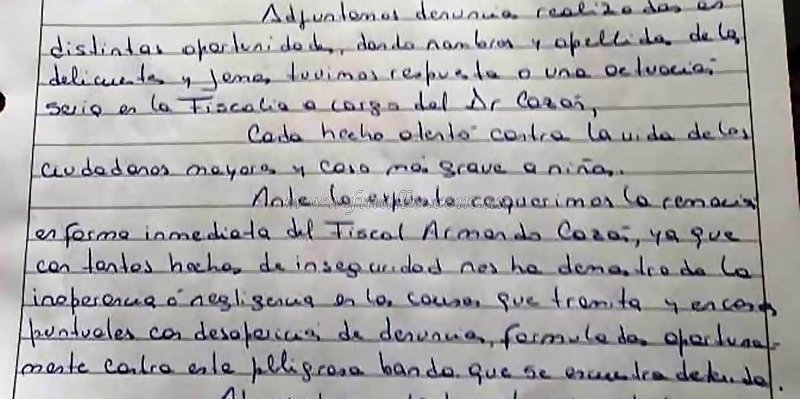 Adjuntamos denuncia realizadas en
distintas oportunidades, dando nombres y apellidos de los
delicuentes y jamas tuvimos respuesta o una actuación
seria en la Fiscalia a cargo del Dr Cozai,
Cada hecho atentó contra la vida de los
ciudadanos mayores y caso mas grave a niñas.
Ante lo expuesto requerimos la remoción
en forma inmediata del Fiscal Armando Cozai, ya que
con tantos hechos de inseguridad nos ha demostrado la
inoperancia ó negligencia en las causas que tramita y en casos
puntuales con desaparición de denuncias, formuladas oportuna-
mente contra esta peligrosa banda que se encuentra detenida.